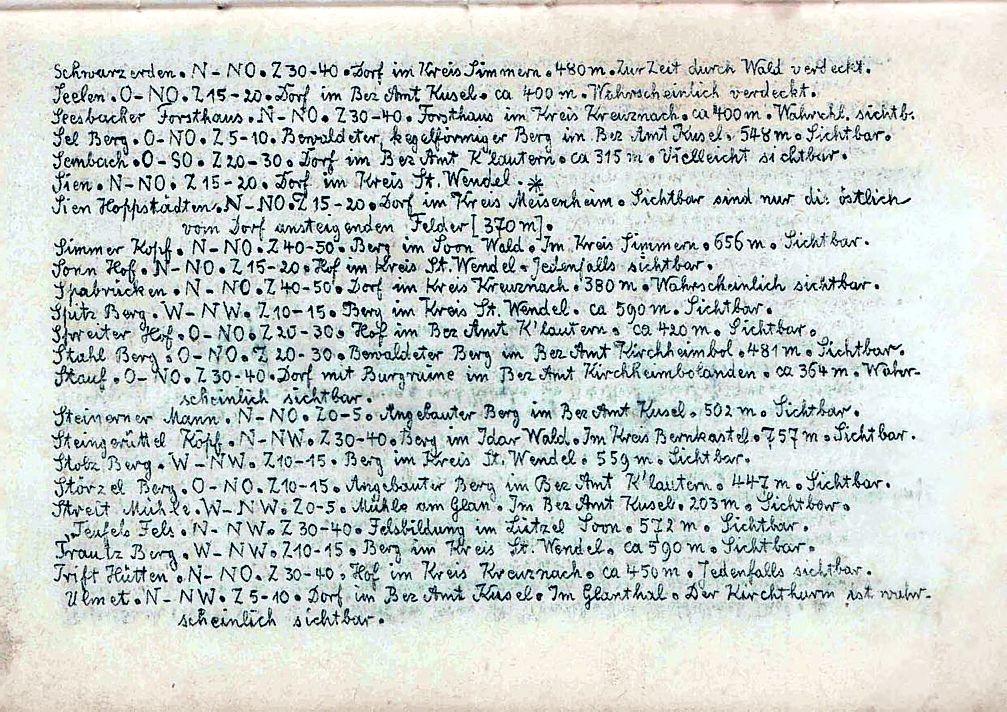 Schwarzerden. N-NO. Z 30-40. Dorf im Kreis Simmern. 480 m. Zur Zeit durch Wald verdeckt.
Seelen. O-NO. Z 15-20. Dorf im Bez Amt Kusel. ca 400 m. Wahrscheinlich verdeckt.
Seesbacher Forsthaus. N-NO. Z 30-40. Forsthaus im Kreis Kreuznach. ca 400 m. Wahrschl. sichtb.
Sel Berg. O-NO. Z 5-10. Bewaldeter, kegelförmiger Berg im Bez Amt Kusel. 548 m. Sichtbar.
Sembach. O-SO. Z 20-30. Dorf im Bez Amt K'lautern. ca 315 m. Vielleicht sichtbar.
Sien. N-NO. Z 15-20. Dorf im Kreis St. Wendel. *
Sien Hoppstädten. N-NO. Z 15-20. Dorf im Kreis Meisenheim. Sichtbar sind nur die östlich
vom Dorf ansteigenden Felder [370 m].
Simmer Kopf. N-NO. Z 40-50. Berg im Soon Wald. Im Kreis Simmern. 656 m. Sichtbar.
Sonn Hof. N-NO. Z 15-20. Hof im Kreis St. Wendel. Jedenfalls sichtbar.
Spabrücken. N-NO. Z 40-50. Dorf im Kreis Kreuznach. 380 m. Wahrscheinlich sichtbar.
Spitz Berg. W-NW. Z 10-15. Berg im Kreis St. Wendel. ca 590 m. Sichtbar.
Spreiter Hof. O-NO. Z 20-30. Hof im Bez Amt K'lautern. ca 420 m. Sichtbar.
Stahl Berg. O-NO. Z 20-30. Bewaldeter Berg im Bez Amt Kirchheimbol. 481 m. Sichtbar.
Stauf. O-NO. Z 30-40. Dorf mit Burgruine im Bez Amt Kirchheimbolanden. ca 364 m. Wahr-
scheinlich sichtbar.
Steinerner Mann. N-NO. Z 0-5. Angebauter Berg im Bez Amt Kusel. 502 m. Sichtbar.
Steingerüttel Kopf. N-NW. Z 30-40. Berg im Idar Wald. Im Kreis Bernkastel. 757 m. Sichtbar.
Stolz Berg. W-NW. Z 10-15. Berg im Kreis St. Wendel. 559 m. Sichtbar.
Störzel Berg. O-NO. Z 10-15. Angebauter Berg im Bez Amt K'lautern. 447 m. Sichtbar.
Streit Mühle. W-NW. Z 0-5. Mühle am Glan. Im Bez Amt Kusel. 203 m. Sichtbar.
Teufels Fels. N-NW. Z 30-40. Felsbildung im Lützel Soon. 572 m. Sichtbar.
Trautz Berg. W-NW. Z 10-15. Berg im Kreis St. Wendel. ca 590 m. Sichtbar.
Trift Hütten. N-NO. Z 30-40. Hof im Kreis Kreuznach. ca 450 m. Jedenfalls sichtbar.
Ulmet. N-NW. Z 5-10. Dorf im Bez Amt Kusel. Im Glanthal. Der Kirchthurm ist wahr-
scheinlich sichtbar.